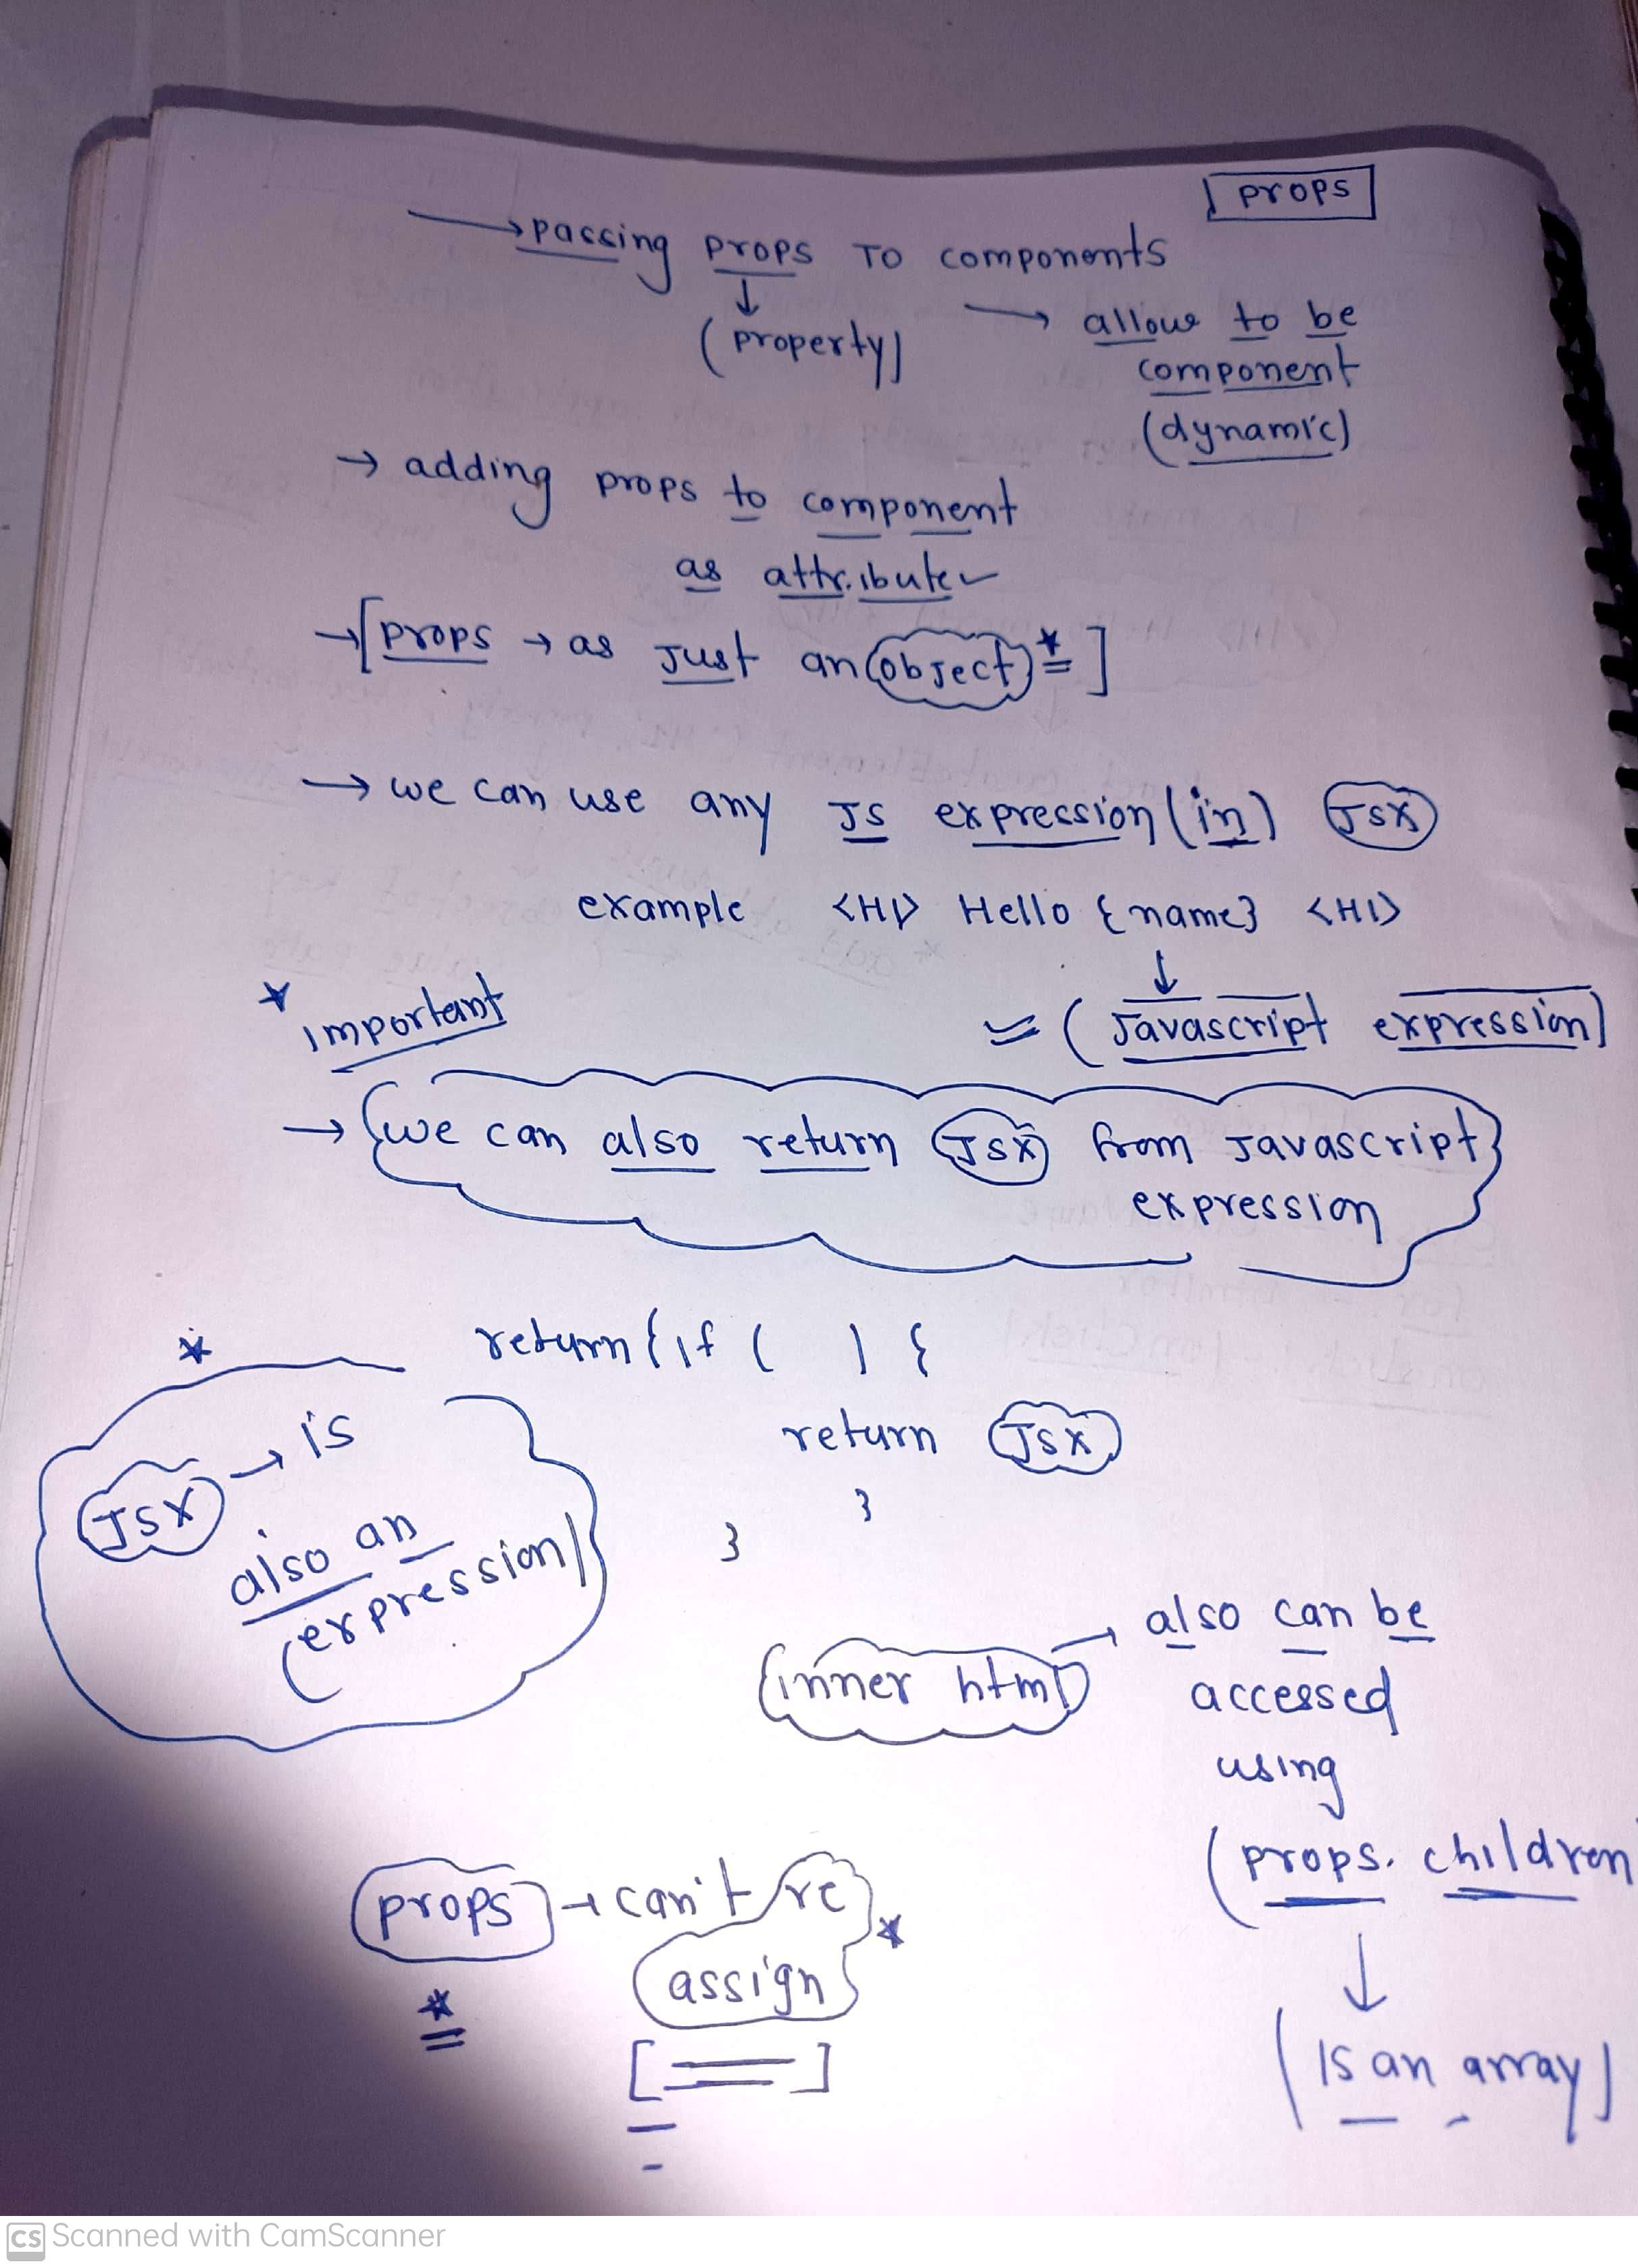 props
→ passing props TO components
↓
(property) → allows to be
component
(dynamic)
→ adding props to component
as attribute
→ [props → as just an object * ]
→ we can use any JS expression (in) JSX
example <H1> Hello {name} <H1>
↓
* important = (Javascript expression)
→ {we can also return JSX from Javascript}
expression
* return { if ( ) {
return JSX
}
}
JSX → is
also an
(expression)
{inner html} → also can be
accessed
using
(props. children
↓
(is an array)
props → can't re
assign *
*
[ ]
CS Scanned with CamScanner